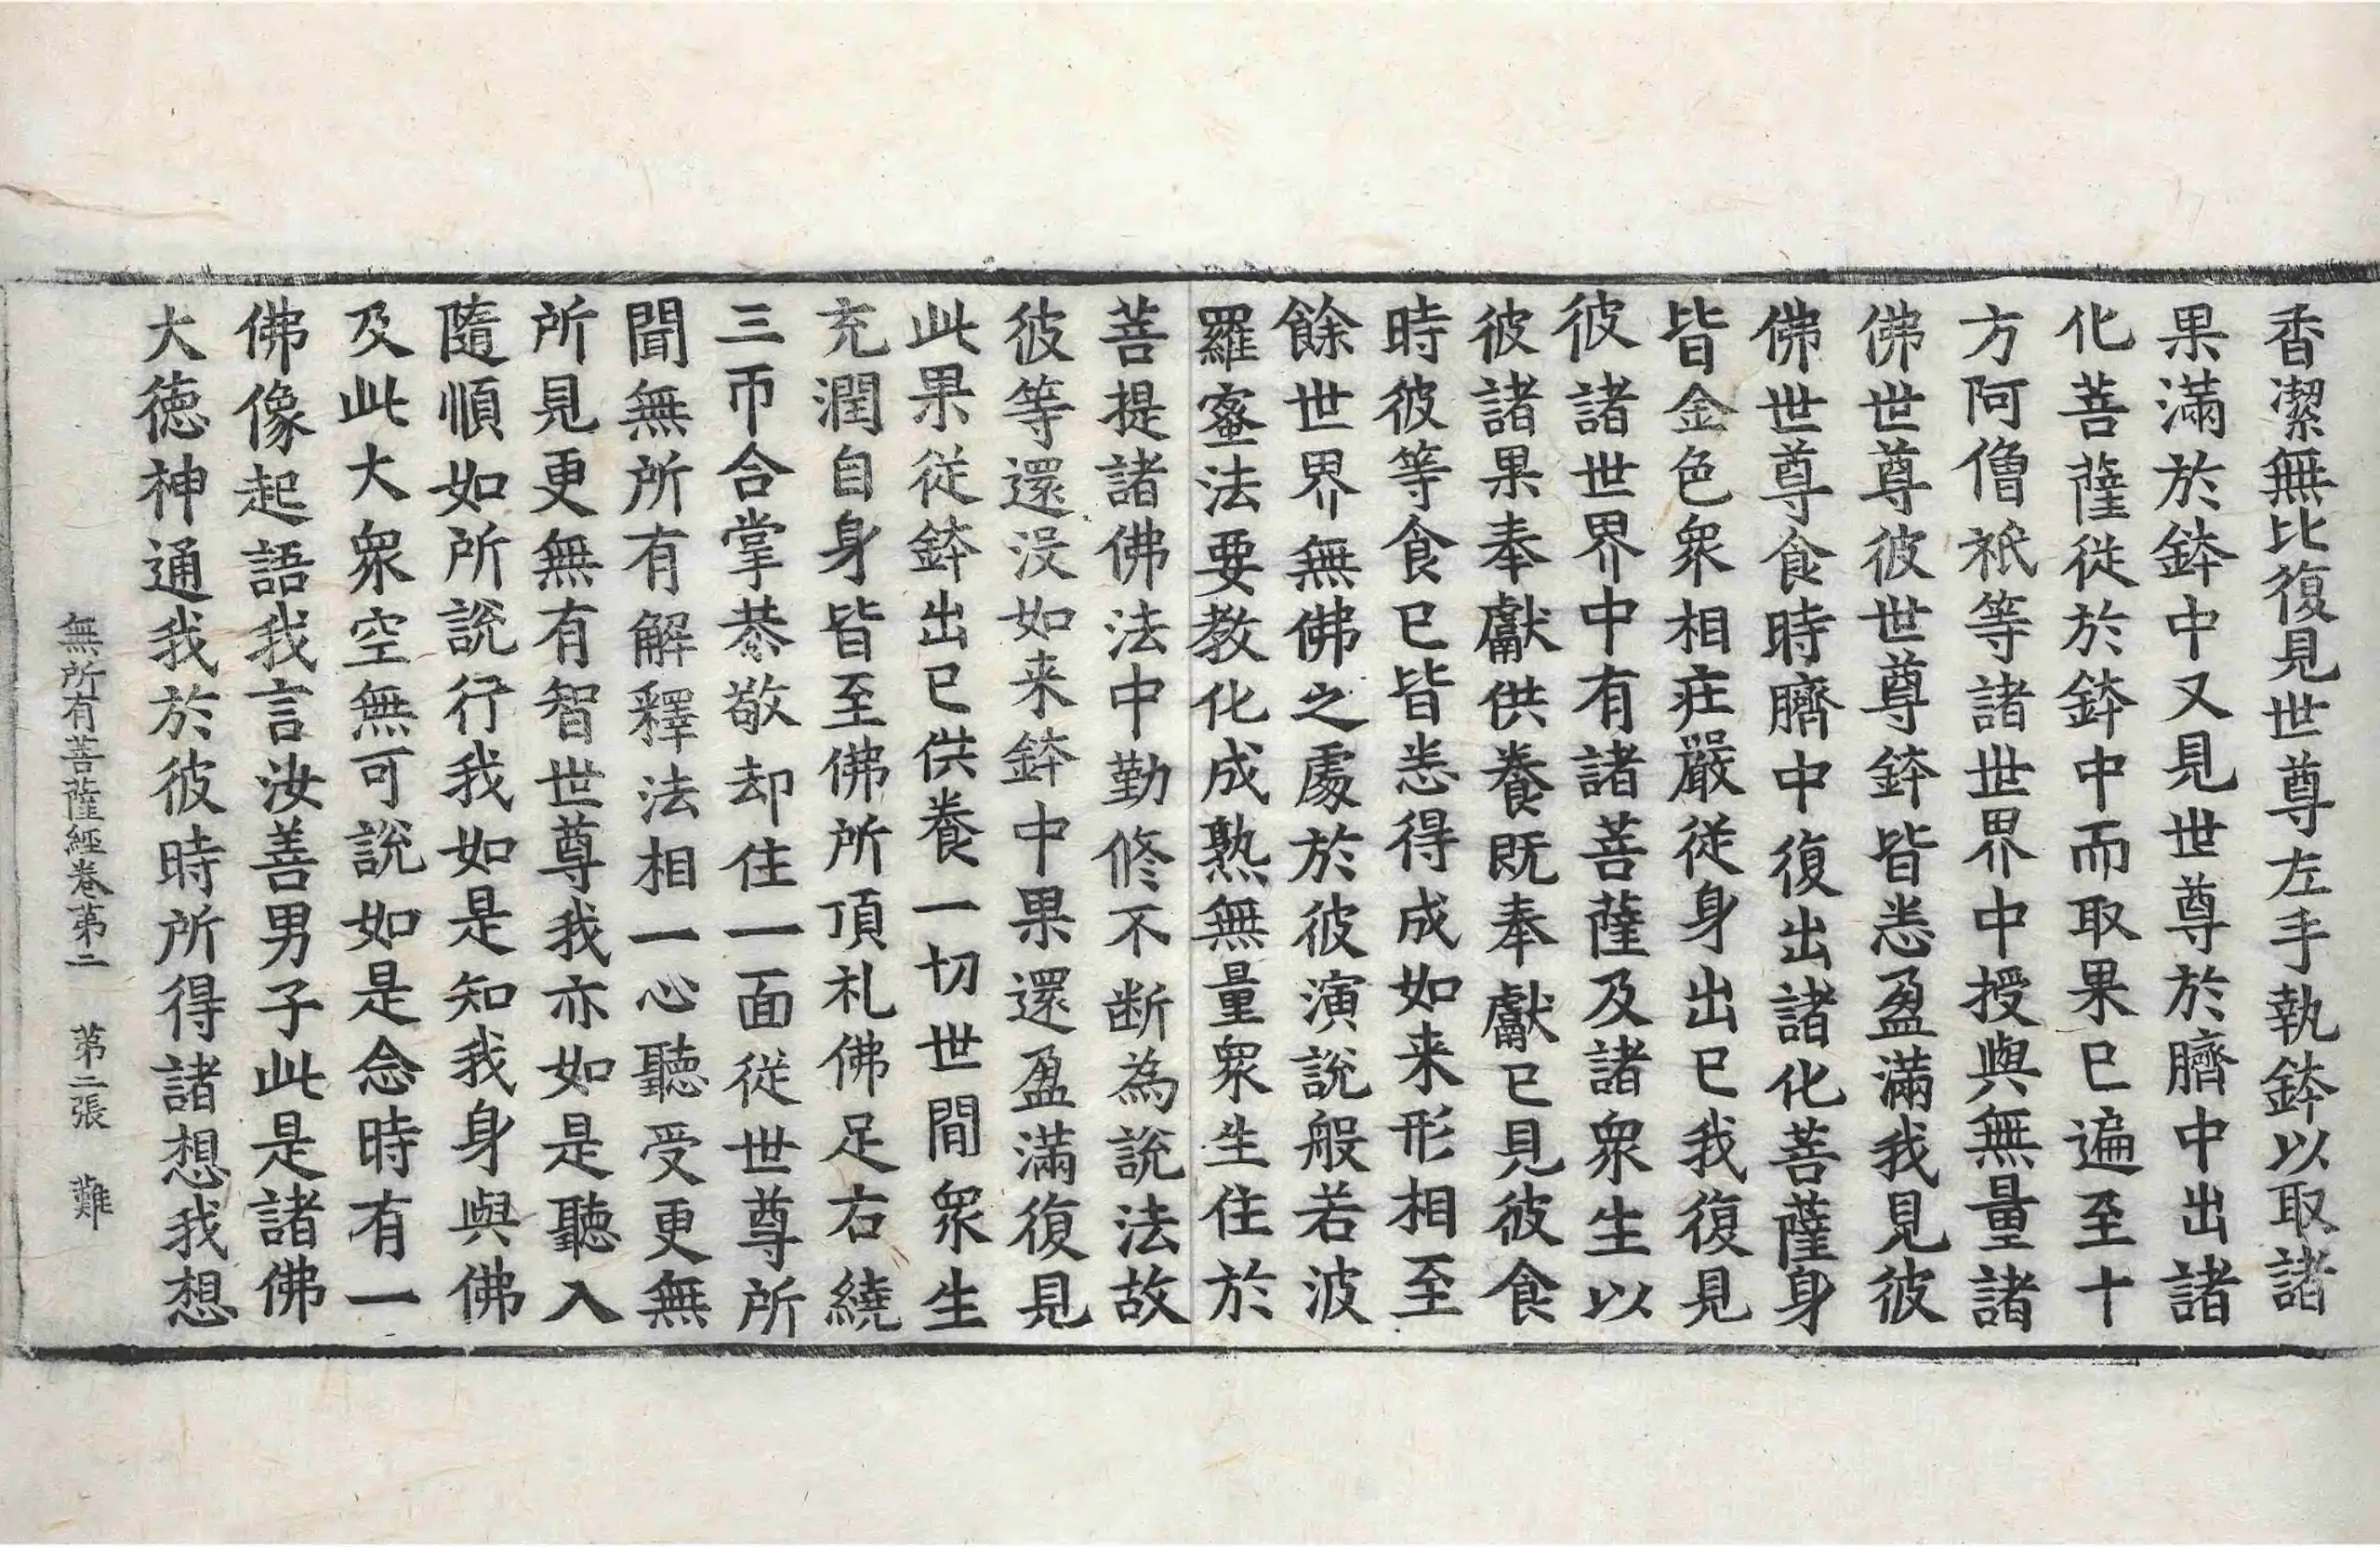 香潔無比復見世尊左手執鉢以取諸
果滿於鉢中又見世尊於臍中出諸
化菩薩從於鉢中而取果已遍至十
方阿僧祇等諸世界中授與無量諸
佛世尊彼世尊鉢皆悉盈滿我見彼
佛世尊食時臍中復出諸化菩薩身
皆金色衆相庄嚴從身出已我復見
彼諸世界中有諸菩薩及諸衆生以
彼諸果奉獻供養既奉獻已見彼食
時彼等食已皆悉得成如来形相至
餘世界無佛之處於彼演說般若波
羅蜜法要教化成熟無量衆生住於
菩提諸佛法中勤修不断為說法故
彼等還没如来鉢中果還盈滿復見
此果從鉢出已供養一切世間衆生
充潤自身皆至佛所頂礼佛足右繞
三帀合掌恭敬却住一面從世尊所
聞無所有解釋法相一心聽受更無
所見更無有智世尊我亦如是聽入
隨順如所說行我如是知我身與佛
及此大衆空無可說如是念時有一
佛像起語我言汝善男子此是諸佛
大德神通我於彼時所得諸想我想
無所有菩薩經卷第二 第二張 難